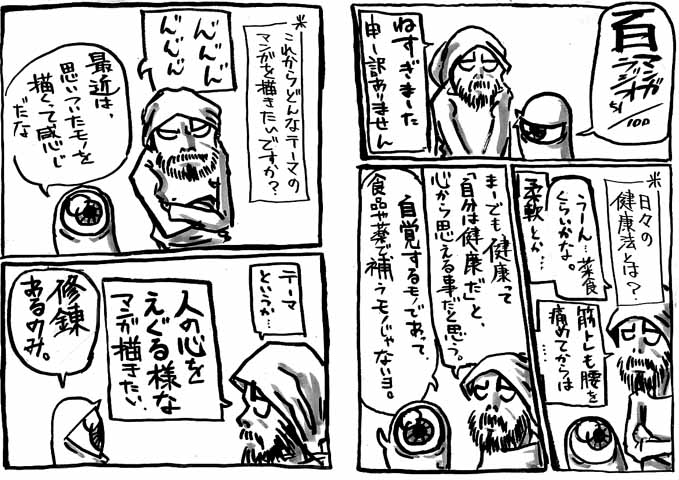 百
マンガ
ラジオ
51/100
ねすぎました
申し訳ありません
※日々の
健康法とは?
うーん…菜食
くらいかな。
柔軟とか…
筋トレも腰を
痛めてからは
……
まーでも、健康って
「自分は健康だ」と、
心から思える事だと思う。
自覚するモノであって
食品や薬で補うモノじゃないヨ。
※これからどんなテーマの
マンガを描きたいですか?
んんん
んんん
最近は、
思いついたモノを
描くって感じ
だな
テーマ
というか…
人の心を
えぐる様な
マンガ描きたい.
修錬
あるのみ。